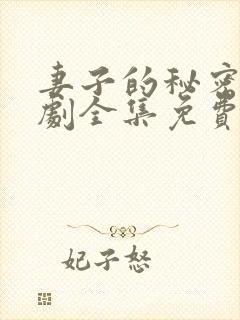 妻子的秘密
劇全集免費
妃子怒